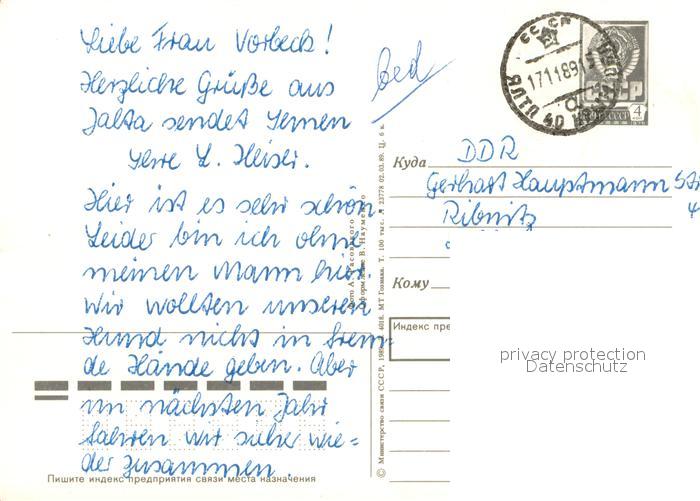 Liebe Frau Vorbeck!
Herzliche Grüße aus
Jalta sendet Ihnen
Ihre L. Heiser.
Hier ist es sehr schön
Leider bin ich ohne
meinen Mann hier.
Wir wollten unseren
Hund nicht in frem-
de Hände geben. Aber
im nächsten Jahr
fahren wir sicher wie=
der zusammen.
Пишите индекс предприятия связи места назначения
© Министерство связи СССР, 198
4018. МТ Гознака. Т. 100 тыс.
23778 02.03.89. Ц. 6 к.
СССР
17 11 89
ЯЛТА
СССР
4
Куда
DDR
Gerhart Hauptmann Str
Ribnitz
Кому
Индекс пре
privacy protection
Datenschutz